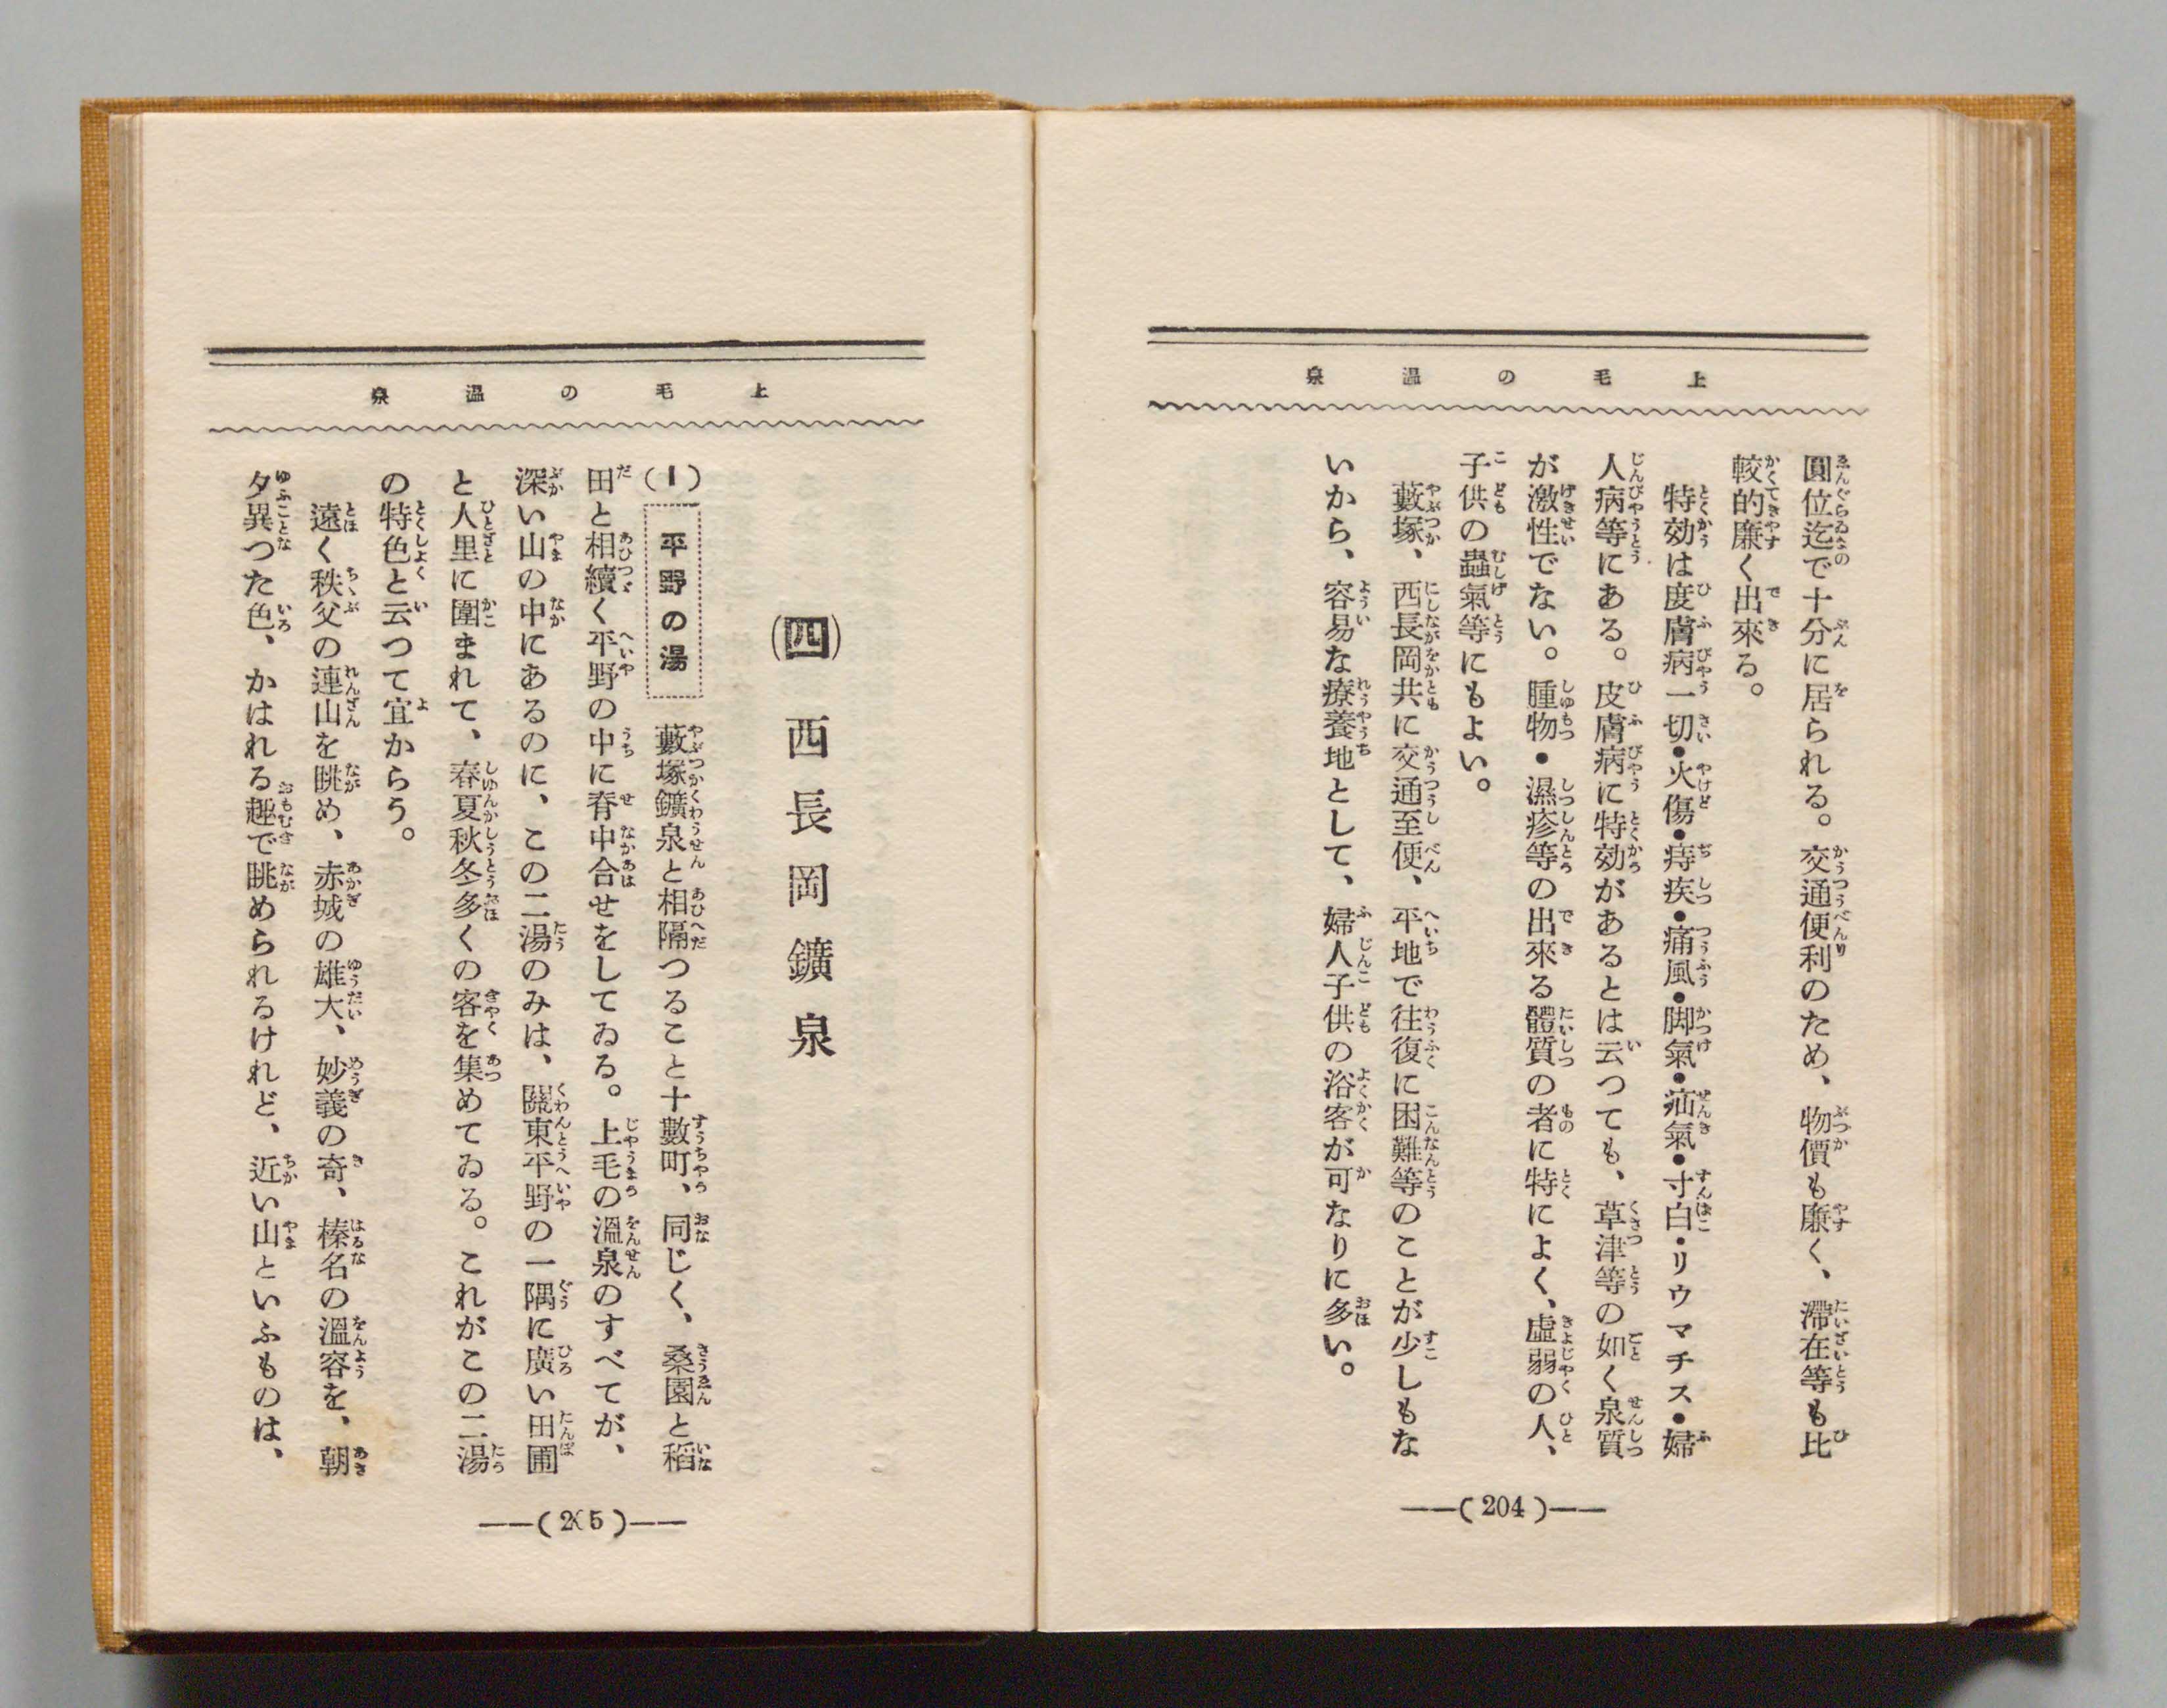 上毛の溫泉
圓位迄で十分に居られる。交通便利のため、物價も廉く、滯在等も比
較的廉く出來る。
特効は度膚病一切・火傷・痔疾・痛風・脚氣・疝氣・寸白・リウマチス・婦
人病等にある。皮膚病に特効があるとは云つても、草津等の如く泉質
が激性でない。腫物・濕疹等の出來る體質の者に特によく、虛弱の人、
子供の蟲氣等にもよい。
藪塚、西長岡共に交通至便、平地で往復に困難等のことが少しもな
いから、容易な療養地として、婦人子供の浴客が可なりに多い。
(204)
上毛の溫泉
(四)西長岡鑛泉
(1)平野の湯 藪塚鑛泉と相隔つること十數町、同じく、桑園と稻
田と相續く平野の中に脊中合せをしてゐる。上毛の溫泉のすべてが、
深い山の中にあるのに、この二湯のみは、關東平野の一隅に廣い田圃
と人里に圍まれて、春夏秋冬多くの客を集めてゐる。これがこの二湯
の特色と云つて宜からう。
遠く秩父の連山を眺め、赤城の雄大、妙義の奇、榛名の溫容を、朝
夕異つた色、かはれる趣で眺められるけれど、近い山といふものは、
(205)